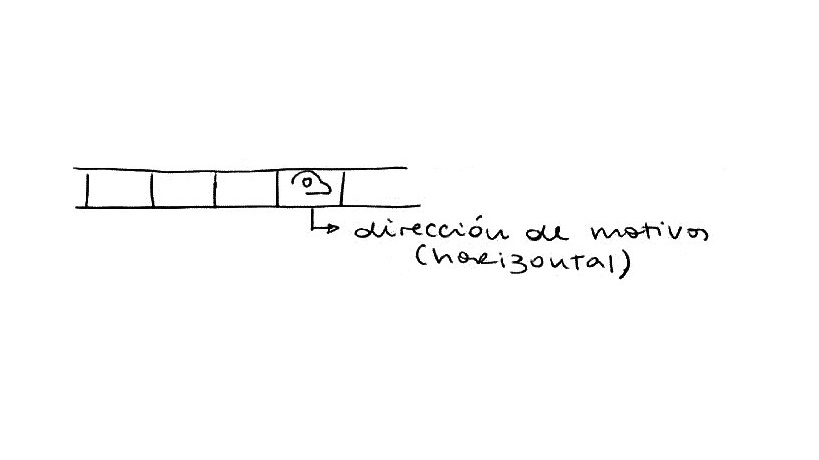 dirección de motivos
(horizontal)